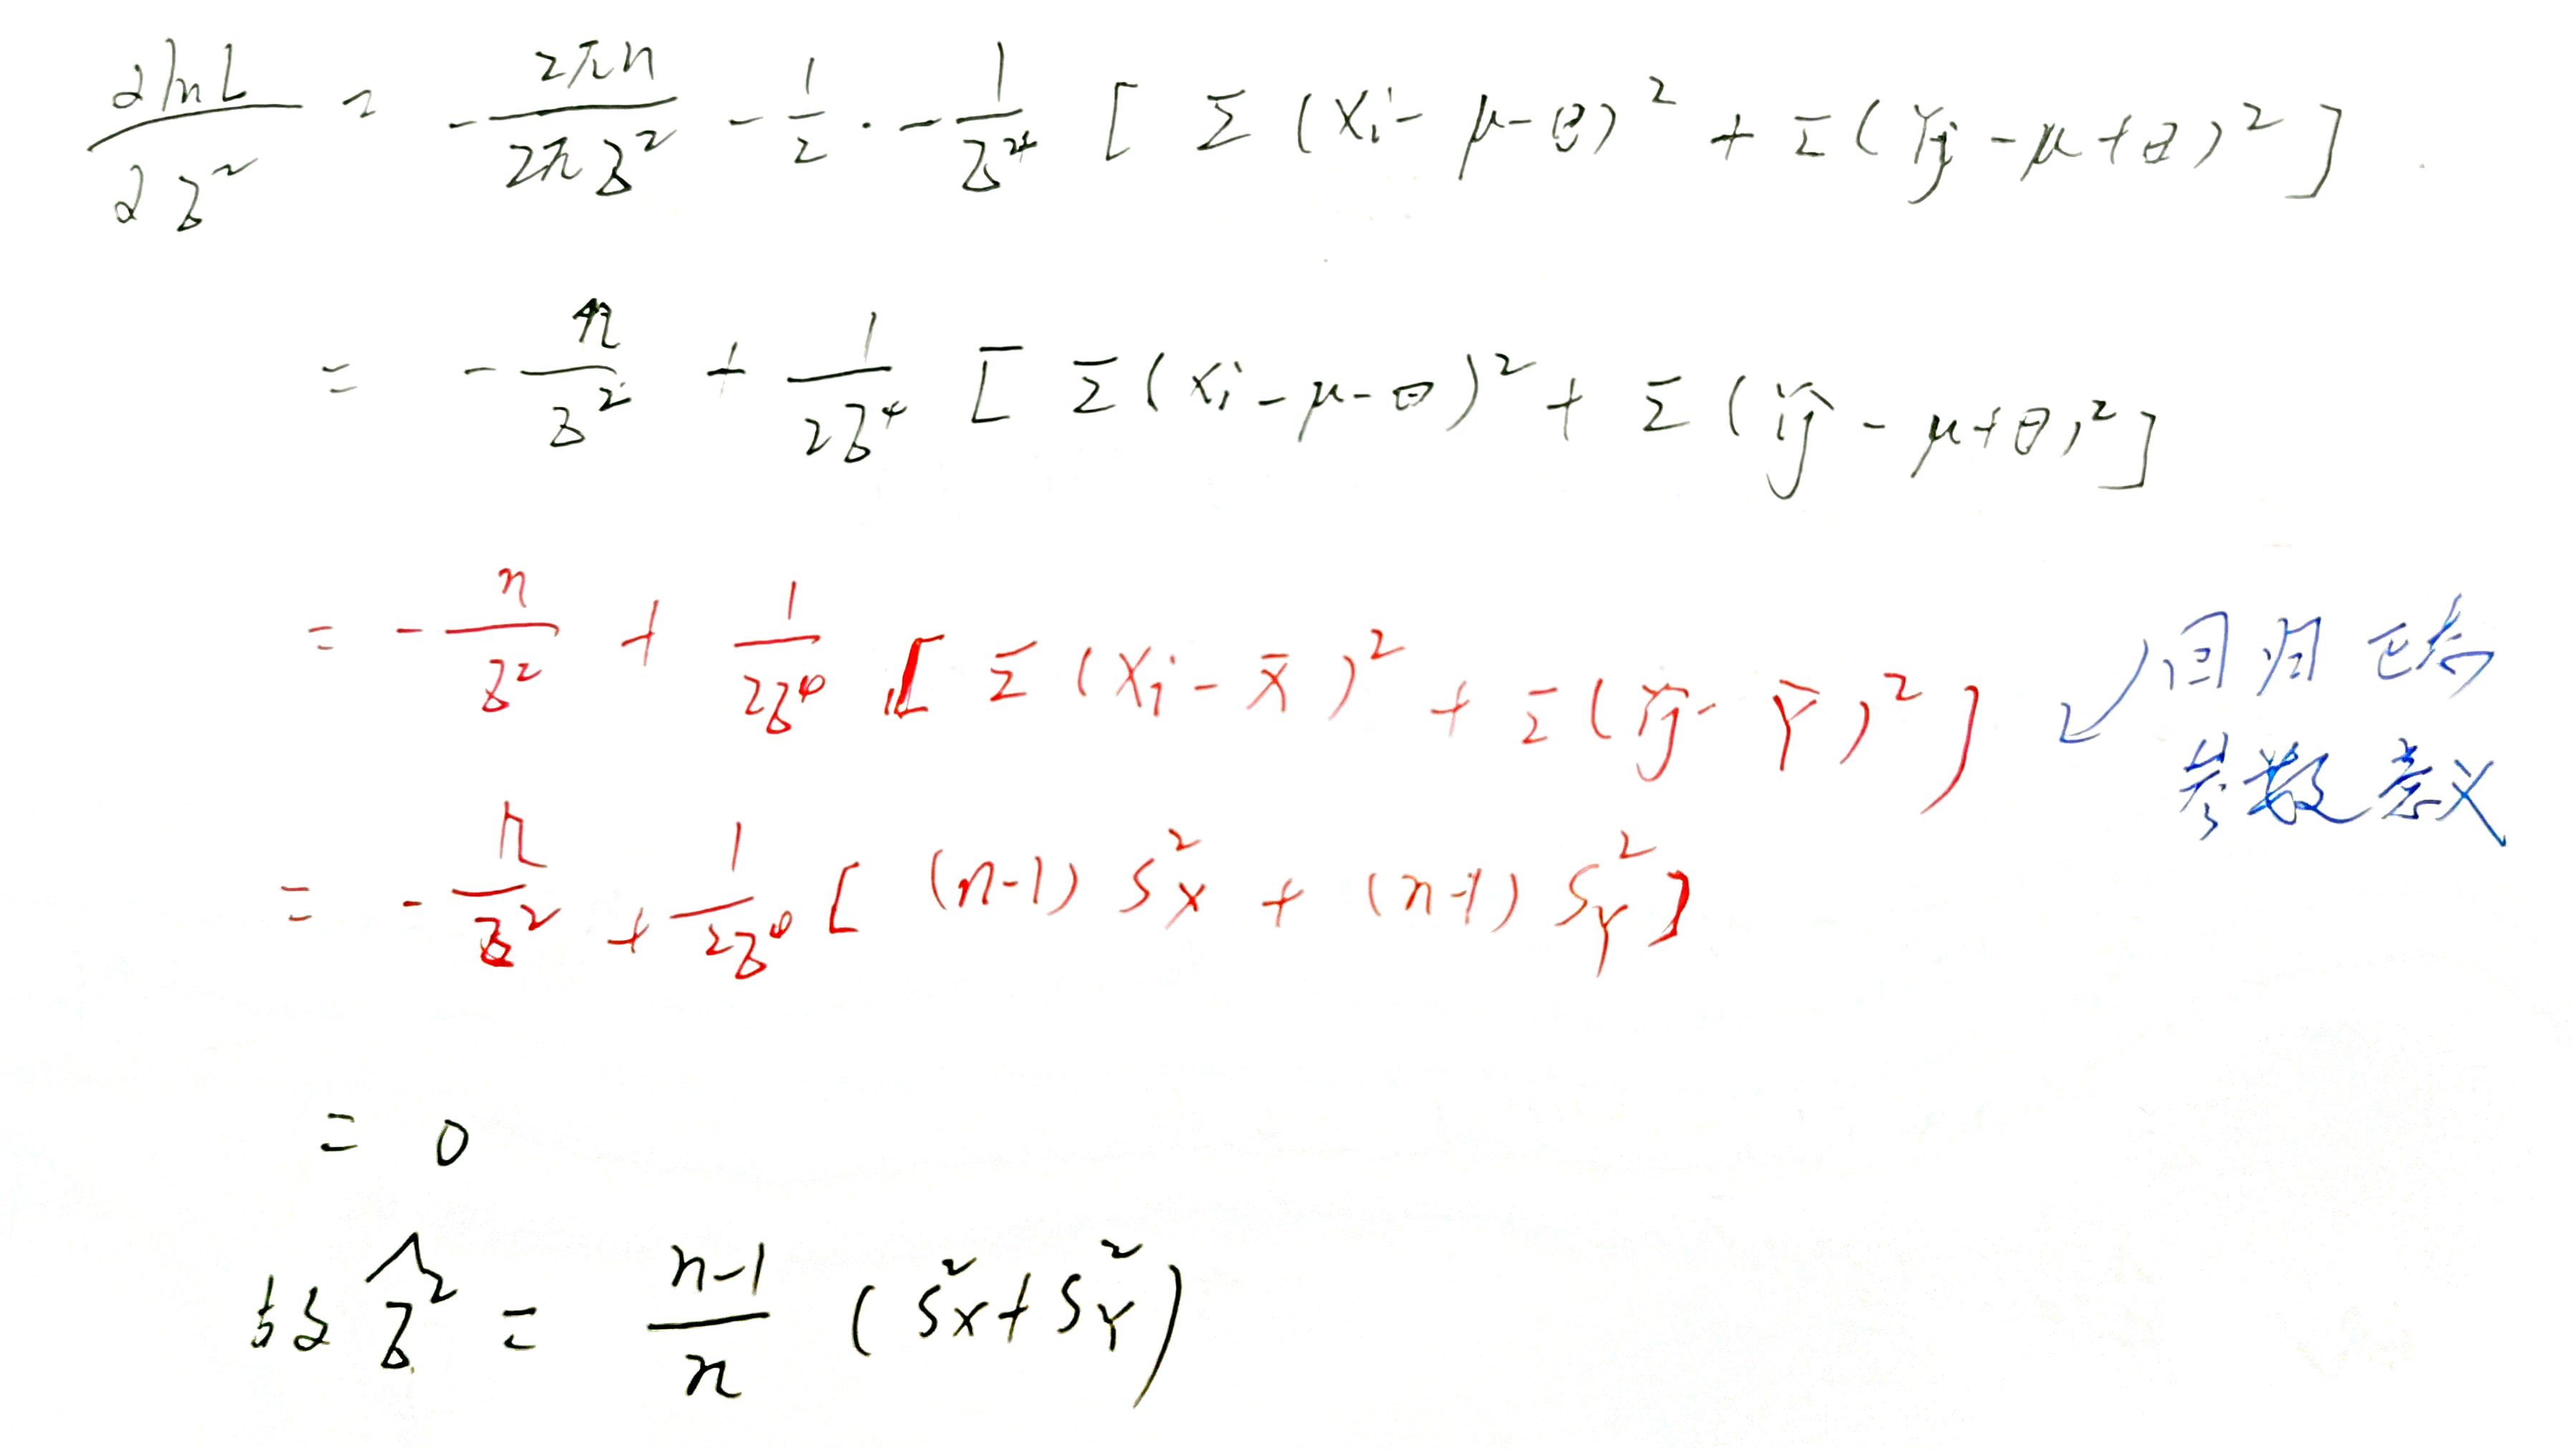 ∂lnL/∂σ² = -2πn/2πσ² - 1/2 · -1/σ⁴ [ Σ (Xi - μ - θ)² + Σ (Yj - μ + θ)² ]
= -n/σ² + 1/2σ⁴ [ Σ (Xi - μ - θ)² + Σ (Yj - μ + θ)² ]
= -n/σ² + 1/2σ⁴ [ Σ (Xi - X̄)² + Σ (Yj - Ȳ)² ] ↙ 回归正态
参数意义
= -n/σ² + 1/2σ⁴ [ (n-1) S²X + (n-1) S²Y ]
= 0
故 σ̂² = n-1/n (S²X + S²Y)